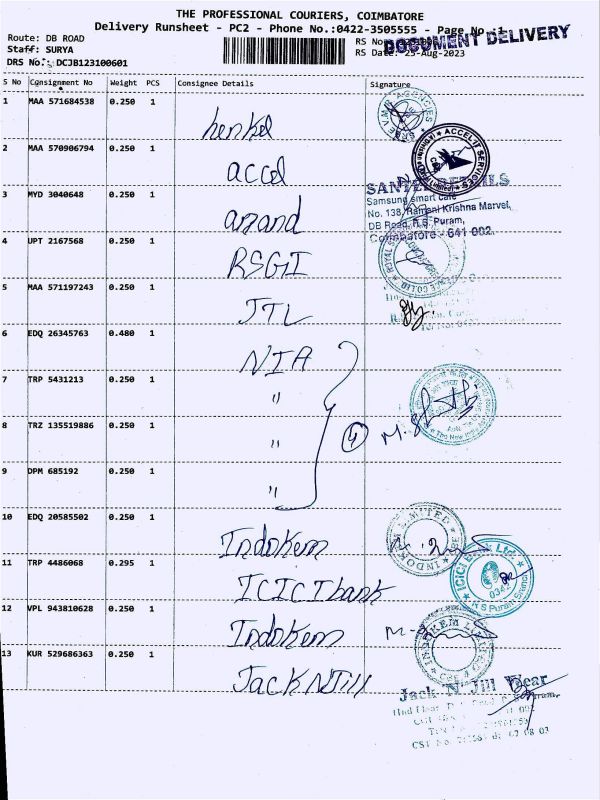 THE PROFESSIONAL COURIERS, COIMBATORE
Delivery Runsheet - PC2 - Phone No.:0422-3505555 - Page No
DOCUMENT DELIVERY
Route: DB ROAD
Staff: SURYA
DRS No.: DCJB123100601
RS No
RS Date: 25-Aug-2023
S No Consignment No Weight PCS Consignee Details Signature
1 MAA 571684538 0.250 1 henkel
AGENCIES
2 MAA 570906794 0.250 1 accel
ACCEL IT SERVICES
3 MYD 3040648 0.250 1 anand
Samsung smart cafe
No. 138, Ramani Krishna Marvel,
DB Road, R.S. Puram,
Coimbatore - 641 002.
4 UPT 2167568 0.250 1 RSGI
ROYAL
5 MAA 571197243 0.250 1 JTL
6 EDQ 26345763 0.480 1 NIA
7 TRP 5431213 0.250 1 "
8 TRZ 135519886 0.250 1 "
4
9 DPM 685192 0.250 1 "
10 EDQ 20585502 0.250 1 Indokem
INDOKEM LIMITED
11 TRP 4486068 0.295 1 ICICI bank
ICICI Bank Ltd
R S Puram
12 VPL 943810628 0.250 1 Indokem
INDOKEM
CBE
13 KUR 529686363 0.250 1 Jack N Jill
Jack 'N' Jill Wear